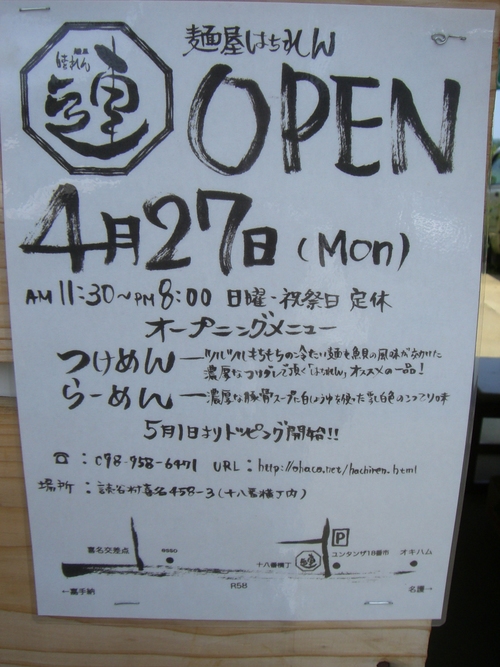 麺屋はちれん
麺屋
はちれん
OPEN
4月27日 (Mon)
AM 11:30〜PM 8:00 日曜・祝祭日 定休
オープニングメニュー
つけめん ー ツルツルもちもちの冷たい麺を魚貝の風味が
濃厚な 頂く「はちれん」オススメの一品!
らーめん ー 濃厚な豚骨スープに白しょうゆを使った乳白色のこってり味
5月1日よりトッピング開始!!
☎ : 098-958-6471 URL : http://ohaco.net/hachiren.html
場所 : 読谷村喜名458-3(十八番横丁内)
P
喜名交差点 esso 十八番横丁 コンタンザ18番市 オキハム
←嘉手納 R58 名護→